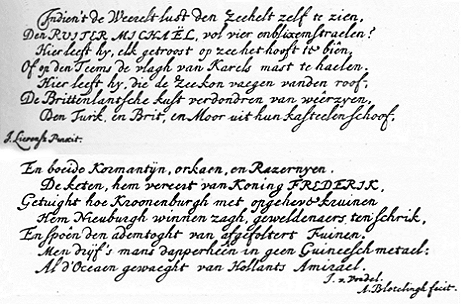 Indien't de Weerelt lust den Zeehelt zelf te zien,
Den RUITER MICHAËL, vol vier en blixemstraelen?
Hier leeft hy, elk getroost op zee het hooft te biên,
Of op den Teems de vlagh van Karels mast te haelen.
Hier leeft hy, die de Zee kon vaegen van den roof,
De Brittenlantsche kust verdondren van weêrzyen,
Den Turk, en Brit, en Moor uit hun kasteelen schoof,
J. Lievense Pinxit.
En boeide Kormantyn, orkaen, en Razernyen.
De keten, hem vereert van Koning FREDERIK,
Getuight hoe Kroonenburgh met opgeheve kruinen
Hem Nieuburgh winnen zagh, geweldenaers, ten schrik,
En spoên den ademtoght van afgefoltert Fuinen.
Men dryf's mans dapperheên in geen Guineesch metael:
Al d'Oceaen gewaeght van Hollants Amirael.
J. v. Vondel.
A. Blotelingh fecit.